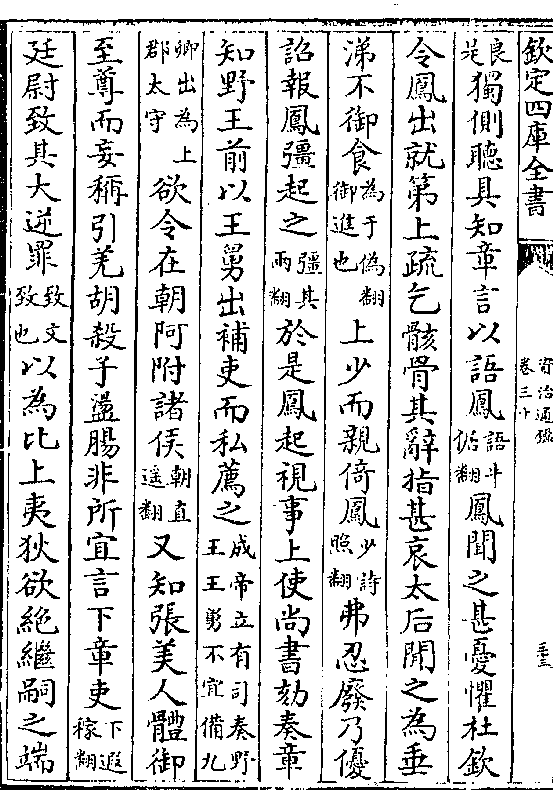 欽定四庫全書
資治通鑑
卷三十
良是獨側聽具知章言以語鳳語牛倨翻鳳聞之甚憂懼杜欽
令鳳出就第上疏乞骸骨其辭指甚哀太后聞之為垂
涕不御食為于偽翻御進也上少而親倚鳳少詩照翻弗忍廢乃優
詔報鳳彊起之彊其兩翻於是鳳起視事上使尚書劾奏章
知野王前以王舅出補吏而私薦之成帝立有司奏野王王舅不宜備九
卿出為上郡太守欲令在朝阿附諸侯朝直遥翻又知張美人體御
至尊而妄稱引羌胡殺子盪腸非所宜言下章吏下遐稼翻
廷尉致其大逆罪致文致也以為比上夷狄欲絶繼嗣之端